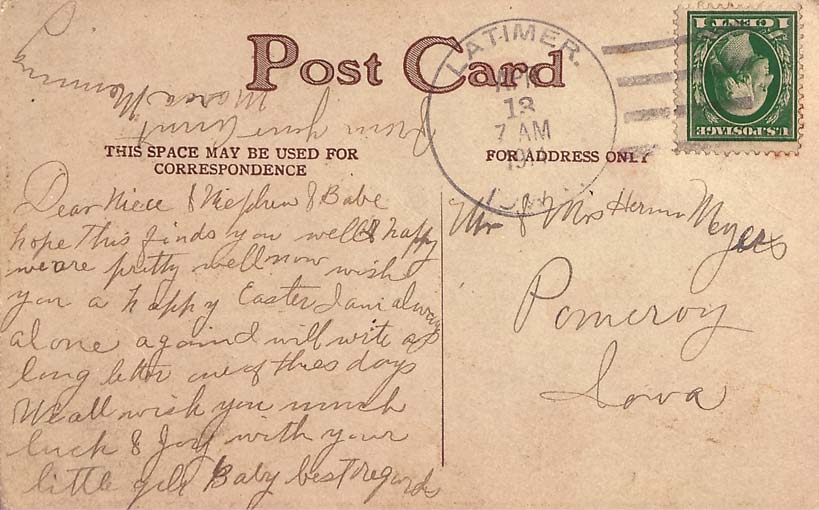 Post Card
THIS SPACE MAY BE USED FOR
CORRESPONDENCE
FOR ADDRESS ONLY
LATIMER.
13
7 AM
U.S. POSTAGE
1 CENT 1
Dear Niece & Niephew & Babe
hope this finds you well & happy
we are pretty well now wish
you a happy Easter I am always
alone again will write a
long letter one of thies days
We all wish you much
luck & Joy with your
little girl Baby best regards
from your Aunt
Mr & Mrs Herman Meyers
Pomeroy
Iowa